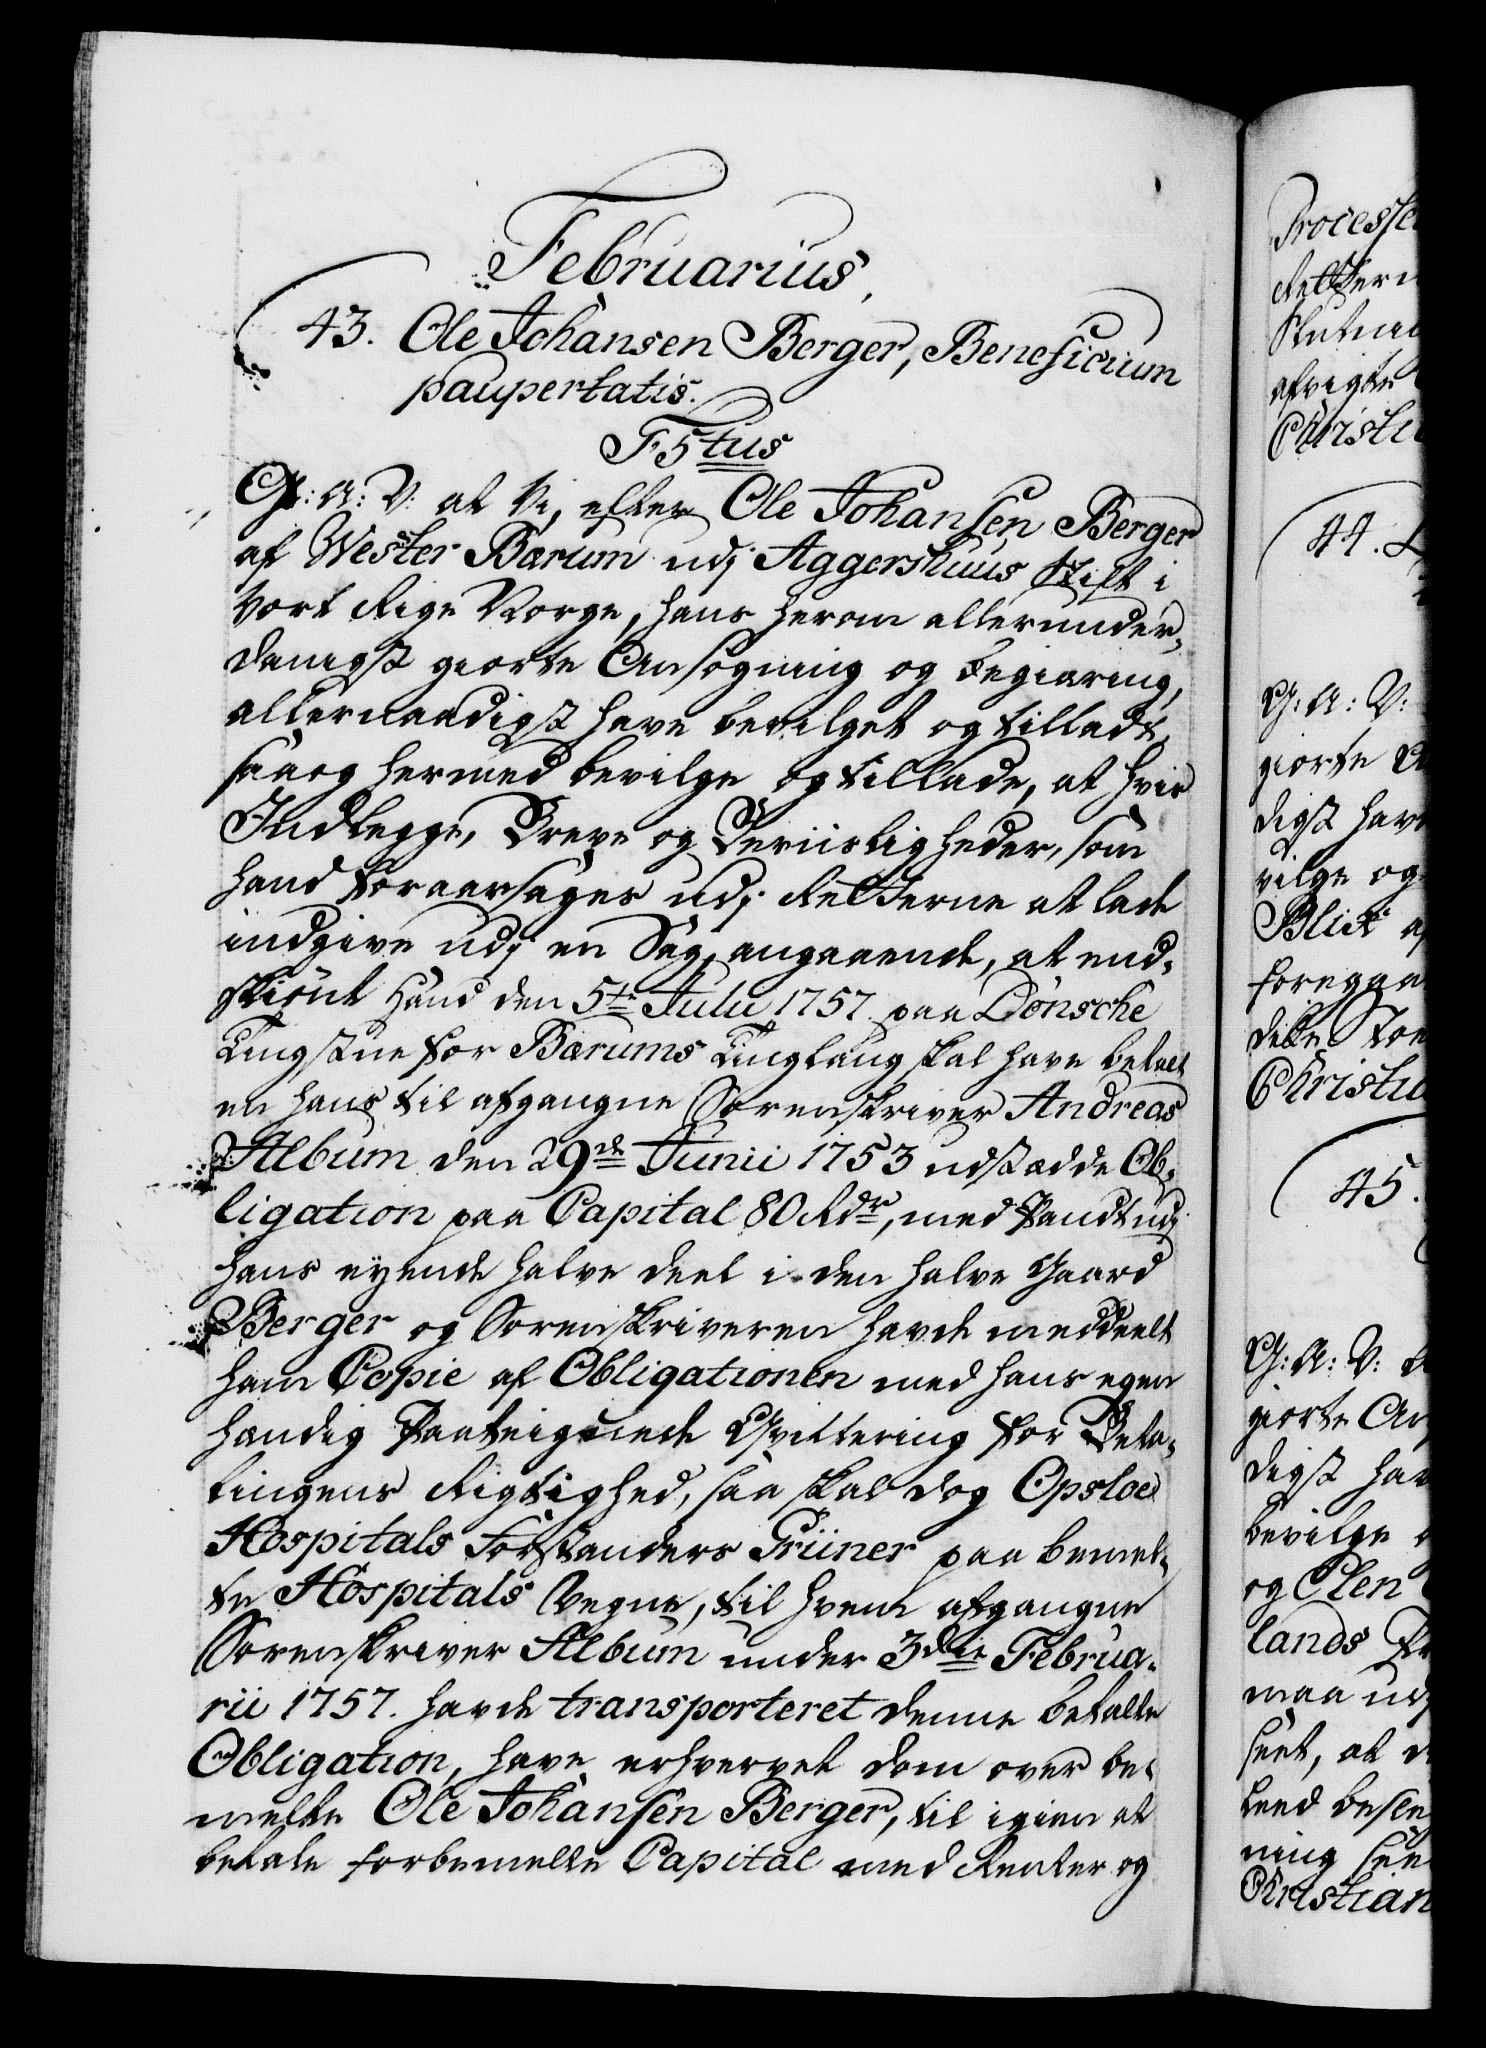 Februarius,
43. Ole Johansen Berger, Beneficium
paupertatis.
F5tus
G: A: V: at Vi, efter Ole Johansen Berger
af Wester Bærum udj Aggershuus Stift i
Vort Rige Norge, hans herom allerunder-
danigst giorte Ansøgning og begiæring,
allernaadigst have bevilget og tilladt,
saa og hermed bevilge og tillade, at hvis
Indlegge, Breve og Beviisligheder, som
hand foraarsages udj Retterne at lade
indgive udj en Sag, angaaende, at end-
skiönt Hand den 5te Julii 1757 paa Dønsche
Tingstue for Bærums Tinglaug skal have betalt
en hans til afgangne Sorenskriver Andreas
Album den 29de Junii 1753 udstædde Ob-
ligation paa Capital 80 Rdr, med Pandt udj
hans eyende halve deel i den halve Gaard
Berger og Sorenskriveren havde meddeelt
ham Copie af Obligationen med hans egen
handig Paateignede Qvittering for Beta-
lingens Rigtighed, saa skal dog Opsloe
Hospitals Forstanders Grüner paa bemel-
te Hospitals Vegne, til hvem afgangne
Sorenskriver Album under 3die Februa-
rii 1757. havde transporteret denne betalte
Obligation, have erhvervet dom over be-
melte Ole Johansen Berger, til igien at
betale forbemelte Capital med Renter og
Processe
Retter
afvigte
Christi
44.
G: A: V:
giorte
digst hav
vilge og
Blik
foregaa
Christi
45.
G: A: V:
giorte An
digst hav
bevilge
og Olen
lands
maa
seet, at
ning
Christian